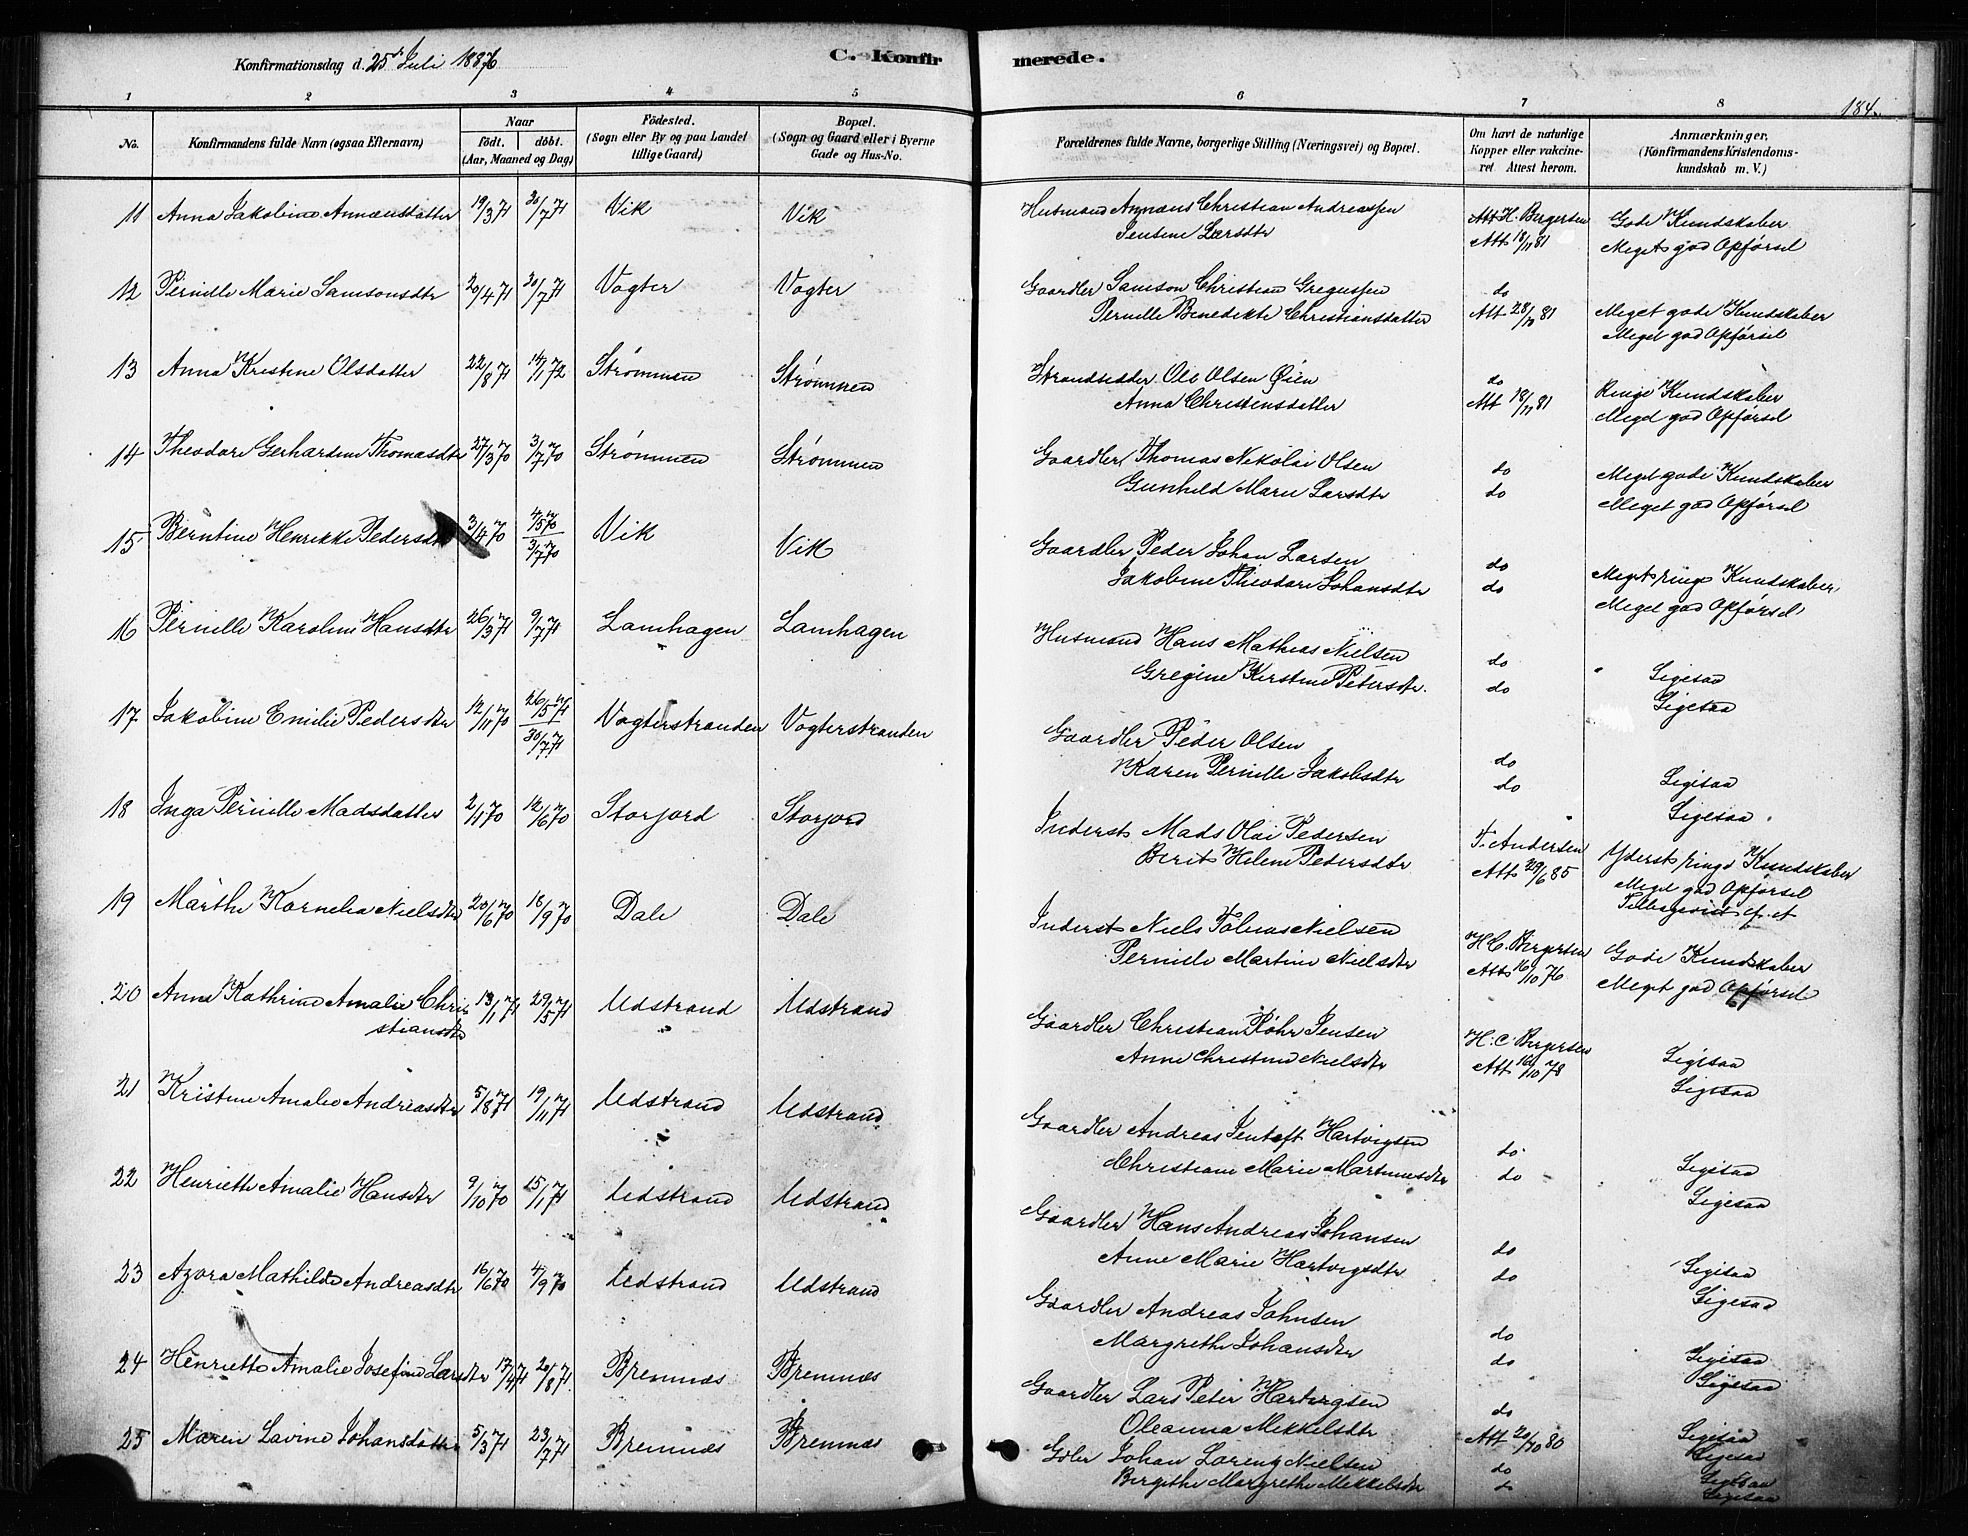 Konfirmationsdag d. 25de Juli 1886
C. Konfirmerede.
184.
1 2 3 4 5 6 7 8
No.
Konfirmandens fulde Navn (ogsaa Efternavn)
Naar
födt. döbt.
(Aar, Maaned og Dag)
Födested.
(Sogn eller By og paa Landet
tillige Gaard)
Bopæl.
(Sogn og Gaard eller i Byerne
Gade og Hus-No.
Forældrenes fulde Navne, borgerlige Stilling (Næringsvei) og Bopæl.
Om havt de naturlige
Kopper eller vakcine-
ret Attest herom.
Anmærkninger.
(Konfirmandens Kristendoms-
kundskab m. V.)
11 Anna Jakobine Annæusdatter 19/3 71 30/7 71 Vik Vik Husmand Annæus Christian Andreassen Att H. Bergersen Gode Kundskaber
Jensine Larsdtr Att 18/11 81 Meget god Opförsel
12 Pernille Marie Samsonsdtr 20/4 71 30/7 71 Vogter Vogter Gaardbr Samson Christian Gregussen do
Pernille Benedikte Christiansdatter Att 28/10 81 Meget gode Kundskaber
Meget god Opförsel
13 Anna Kristine Olsdatter 22/8 71 14/1 72 Strømmen Strømmen Strandsidder Ole Olsen Øien do Ringe Kundskaber
Anna Christensdatter Att 18/11 81 Meget god Opförsel
14 Theodore Gerhardine Thomasdtr 27/3 70 3/7 70 Strømmen Strømmen Gaardbr Thomas Nikolai Olsen do Meget gode Kundskaber
Gunhild Marie Larsdtr do Meget god Opförsel
15 Berntine Henrikke Pedersdtr 3/4 70 4/5 70 Vik Vik Gaardbr Peder Johan Larsen do Meget ringe Kundskaber
3/7 70
Jakobine Theodore Johansdtr do Meget god Opförsel
16 Pernille Karoline Hansdtr 26/3 71 9/7 71 Lamhagen Lamhagen Husmand Hans Mathias Nielsen do Ligesaa
Gregine Kirstine Petersdtr. do Ligesaa
17 Jakobine Emilie Pedersdtr 12/11 70 26/5 71 Vogterstranden Vogterstranden Gaardbr Peder Olsen do Ligesaa
30/7 71
Karen Pernille Jakobsdtr do Ligesaa
18 Inga Pernille Madsdatter 2/1 70 12/6 70 Storjord Storjord Inderst Mads Olai Pedersen T. Andersen Yderst ringe Kundskaber
Berit Helene Pedersdtr Att 29/6 85 Meget god Opförsel
19 Marthe Kornelia Nielsdtr 20/6 70 18/9 70 Dale Dale Inderst Niels Tobias Nielsen H C. Bergersen Gode Kundskaber
Pernile Martine Nielsdtr Att 16/10 76 Meget god Opförsel
20 Anna Kathrine Amalie Chri- 13/1 71 29/5 71 Udstrand Udstrand Gaardbr Christian Röhr Jensen H. C. Bergersen Ligesaa
stiansdtr
Anne Christine Nielsdtr Att 16/10 78 Ligesaa
21 Kristine Amalie Andreasdtr 5/8 71 19/11 71 Udstrand Udstrand Gaardbr Andreas Jentoft Hartvigsen do Ligesaa
Christiane Marie Martinusdtr do Ligesaa
22 Henriette Amalie Hansdtr 9/10 70 15/1 71 Udstrand Udstrand Gaardbr Hans Andreas Johansen do Ligesaa
Anne Marie Hartvigsdtr do Ligesaa
23 Azora Mathilde Andreasdtr 16/6 70 4/9 70 Udstrand Udstrand Gaardbr Andreas Johnsen do Ligesaa
Margrethe Johansdtr do Ligesaa
24 Henriette Amalie Josefine Larsdtr 17/4 71 20/8 71 Bremnæs Bremnæs Gaardbr Lars Peter Hartvigsen do Ligesaa
Oleanna Mikkelsdtr Att 20/10 80 Ligesaa
25 Maren Lavine Johansdatter 5/3 71 23/7 71 Bremnæs Bremnæs Gbr Johan Lorentz Nielsen do Ligesaa
Bergithe Margrethe Mikkelsdtr do Ligesaa